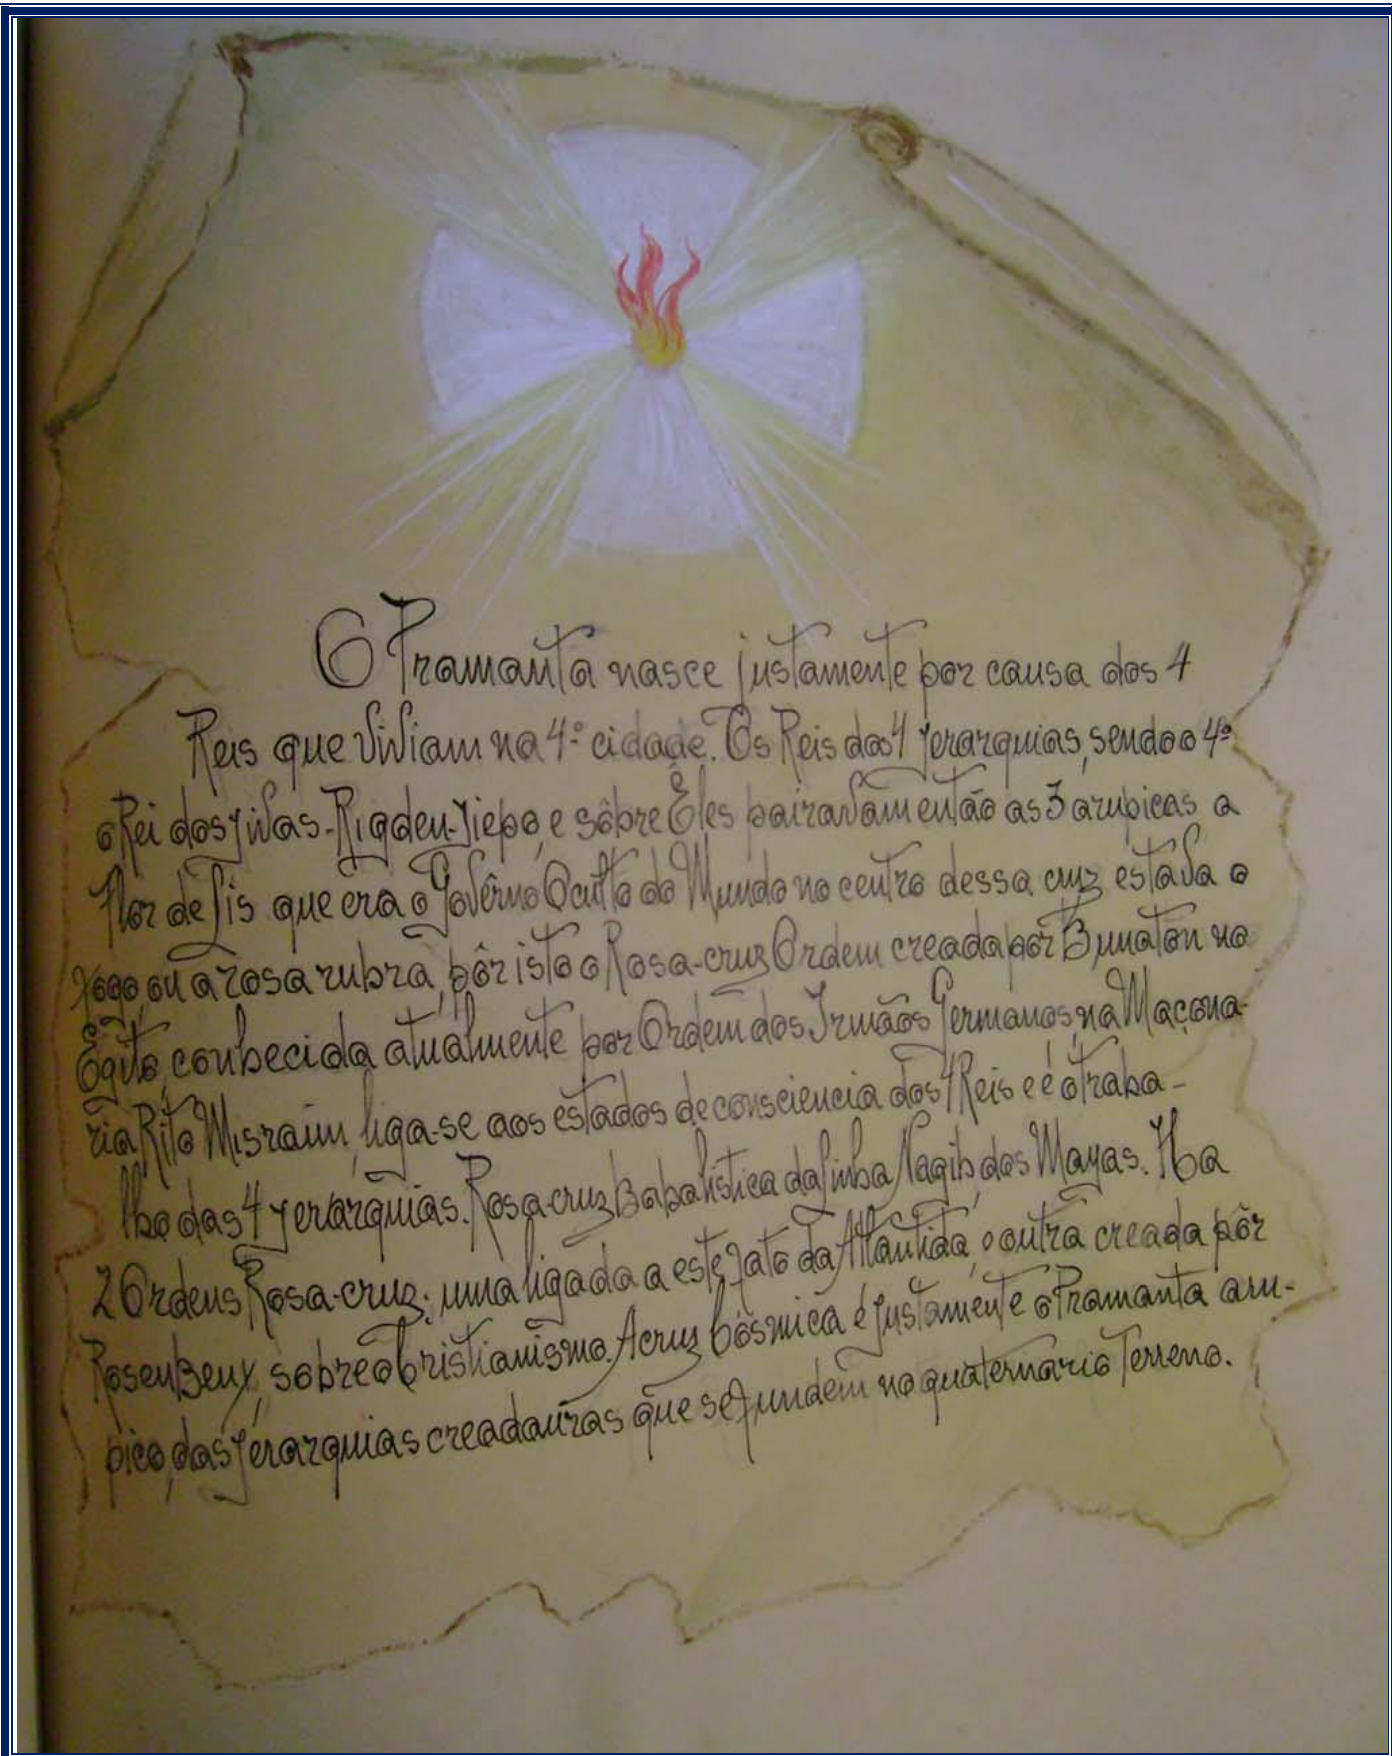 O Pramanta nasce justamente por causa dos 4
Reis que viviam na 4ª cidade. Os Reis das 4 Jerarquias, sendo o 4º
o Rei dos Jivas - Rigden-Jiepo, e sôbre Eles pairavam então as 3 arupicas a
flor de Lis que era o Govêrno Oculto do Mundo no centro dessa cruz estava o
Fogo ou a rosa rubra, pôr isto o Rosa-cruz Ordem creada pôr Bunaton no
Egito, conhecida atualmente por Ordem dos Irmãos Germanos, na Maçona-
ria Rito Misraim, liga-se aos estados de consciencia dos 4 Reis e é o traba-
lho das 4 Jerarquias. Rosa-cruz Kabalistica da Linha Nagib, dos Mayas. Ha
2 Ordens Rosa-cruz; uma ligada a este fato da Atlantida, o outra creada pôr
sobre o Cristianismo. A cruz Cósmica é justamente o Pramanta aru-
pico, das Jerarquias creadauras que se fundem no quaternario Terreno.